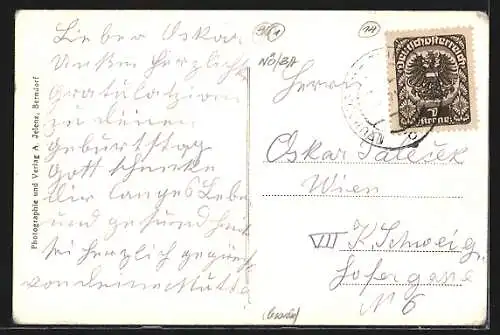 Lieber Oskar
Unsere herzlichste
Gratulazion
zu deinen
Geburtstag
Gott schenke
dir langes Leben
und gesundheit
sei herzlich gegrüßt
von deine Mutter
Photographie und Verlag A. Jelenz, Berndorf
991
14
NÖ/BA
Deutschösterreich
1
Krone
Herrn
Oskar
Wien
VII K. Schweig
hofergasse
N 6